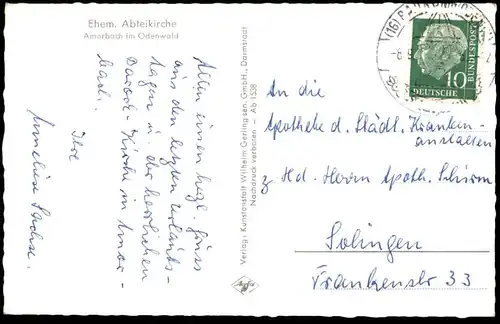 Ehem. Abteikirche
Amorbach im Odenwald
Allen einen herzl. Gruss
aus den letzten Urlaubs-
tagen u. der herrlichen
Barock-Kirche in Amor-
bach.
Ihre
Anneliese Sachse.
Verlag: Kunstanstalt Wilhelm Gerling sen. GmbH., Darmstadt
Nachdruck verboten — Ab 1538
(16)
-8.
10
DEUTSCHE
BUNDESPOST
An die
Apotheke d. Städt. Kranken-
anstalten
z. Hd. Herrn Apoth. Schirm
Solingen
Frankenstr 33